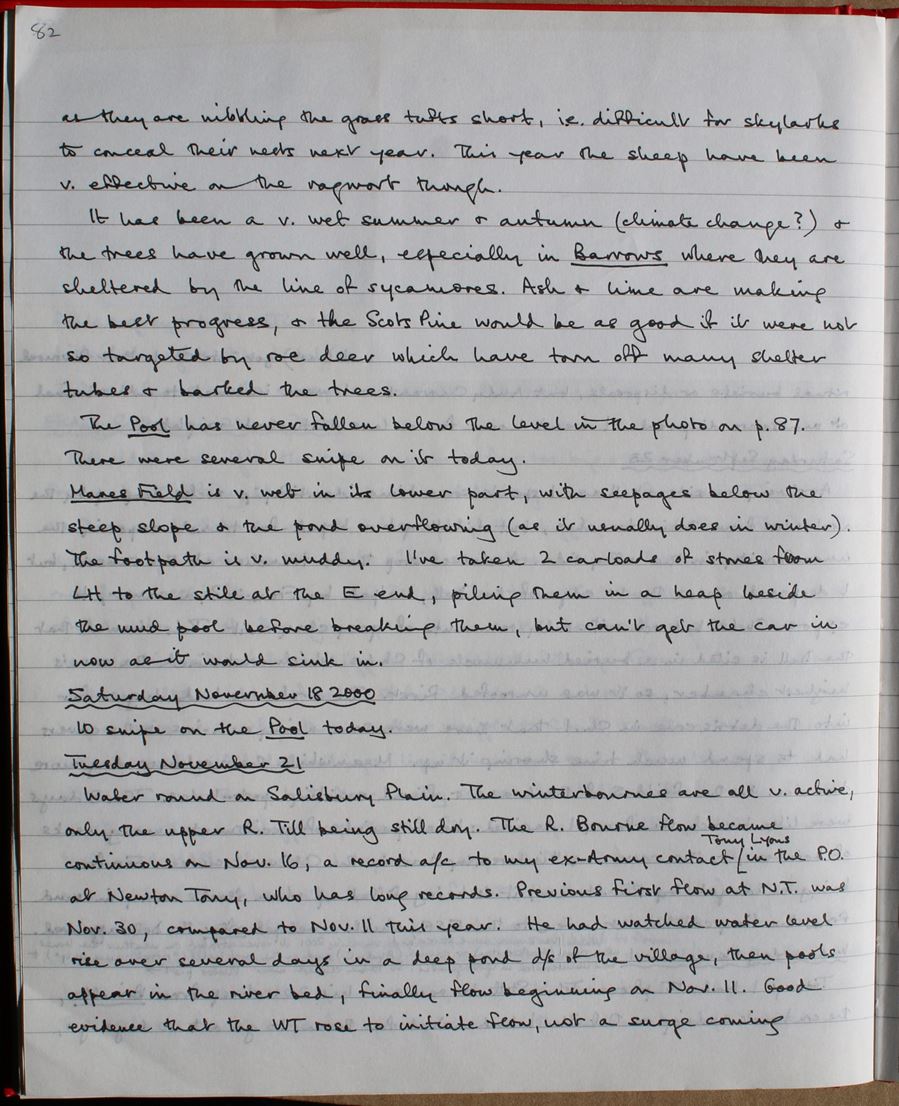 82
as they are nibbling the grass tufts short, i.e. difficult for skylarks
to conceal their nests next year. This year the sheep have been
v. effective on the ragwort though.
It has been a v. wet summer & autumn (climate change?) &
the trees have grown well, especially in Barrows where they are
sheltered by the line of sycamores. Ash & lime are making
the best progress, & the Scots Pine would be as good if it were not
so targeted by roe deer which have torn off many shelter
tubes & barked the trees.
The Pool has never fallen below the level in the photo on p. 87.
There were several snipe on it today.
Manes Field is v. wet in its lower part, with seepages below the
steep slope & the pond overflowing (as it usually does in winter).
The footpath is v. muddy. I've taken 2 carloads of stones from
LH to the stile at the E end, piling them in a heap beside
the mud pool before breaking them, but can't get the car in
now as it would sink in.
Saturday November 18 2000
10 snipe on the Pool today.
Tuesday November 21
Water round on Salisbury Plain. The winterbournes are all v. active,
only the upper R. Till being still dry. The R. Bourne flow became
continuous on Nov. 16, a record a/c to my ex-Army contact [Tony Lyons in the P.O.
at Newton Tony, who has long records. Previous first flow at N.T. was
Nov. 30, compared to Nov. 11 this year. He had watched water level
rise over several days in a deep pond d/s of the village, then pools
appear in the river bed, finally flow beginning on Nov. 11. Good
evidence that the WT rose to initiate flow, not a surge coming